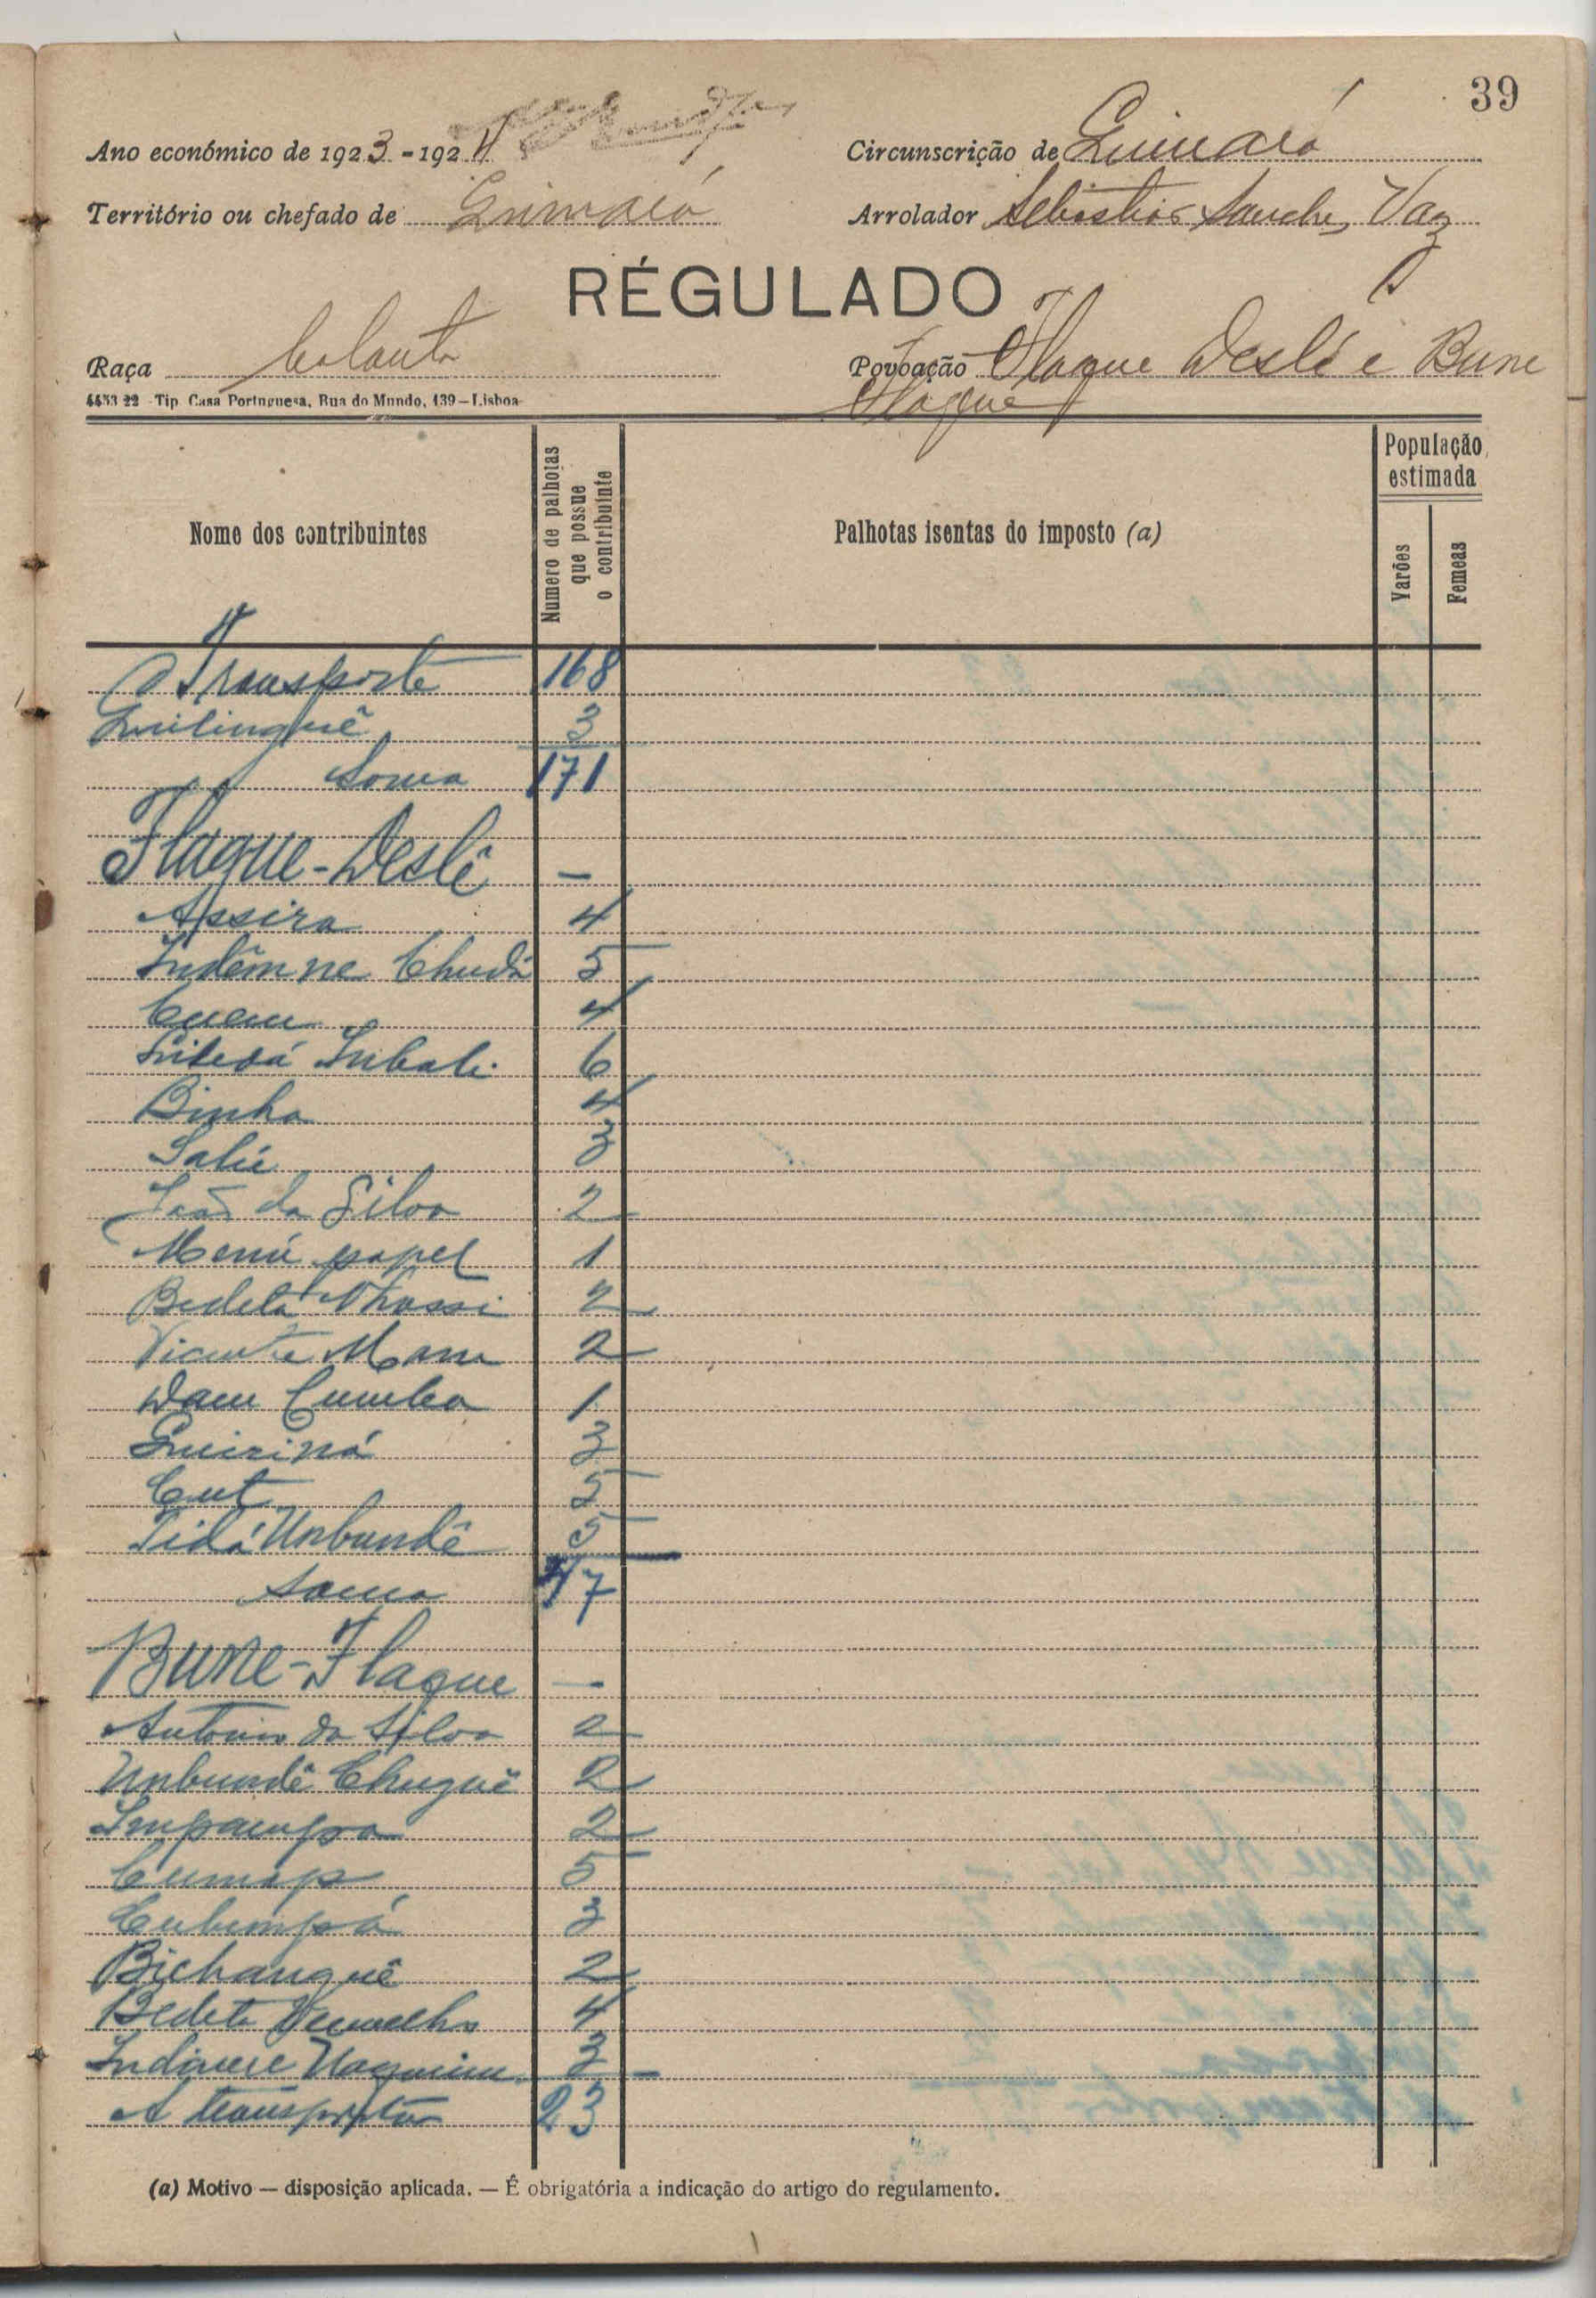 39
Ano económico de 1923-1924
Circunscrição de
Território ou chefado de
Arrolador Sebastião Sanches Vaz
RÉGULADO
Raça
Povoação Flaque Deslê e Bune
Flaque
4453 22 Tip Casa Portuguesa, Rua do Mundo, 139—Lisboa
Nome dos contribuintes
Numero de palhotas que possue o contribuinte
Palhotas isentas do imposto (a)
População estimada
Varões
Femeas
Transporte 168
3
Soma 171
Flaque-Deslê —
Assira 4
Indêmne Chudá 5
Cuem 4
6
Binha 4
Salú 3
João da Silva 2
Menú papel 1
2
Vicente Mané 2
Dam Cumba 1
3
Cut 5
Tidá Unbundê 5
Soma 47
Bune-Flaque —
Antonio da Silva 2
Unbundê Chuguê 2
Impampa 2
Cumap 5
3
Bichanguê 2
Bedeta Vermelho 4
3
A transportar 23
(a) Motivo — disposição aplicada. — É obrigatória a indicação do artigo do regulamento.